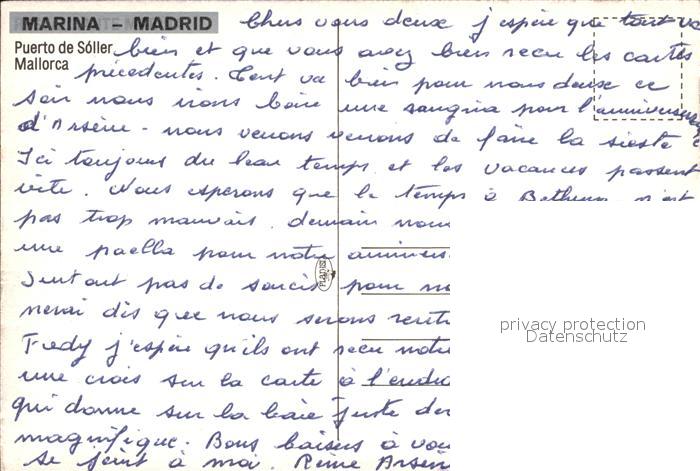 MARINA – MADRID
Puerto de Sóller
Mallorca
Chers vous deux j'espère que tout va
bien et que vous avez bien recu les cartes
précedentes. Tout va bien pour nous deux ce
soir nous irons boire une sangria pour l'anniversaire
d'Arsène - nous venons venons de faire la sieste
Ici toujours du beau temps et les vacances passent
vite. Nous esperons que le temps à n'est
pas trop mauvais. demain nous
une paella pour notre annivers
Surtout pas de soucis pour
dis que nous serons
Fredy j'espère qu'ils ont recu notre
une croix sur la carte à l'endro
qui donne sur la baie juste
magnifique. Bons baisers à vou
se joint à moi. Reine Arsèn
privacy protection
Datenschutz